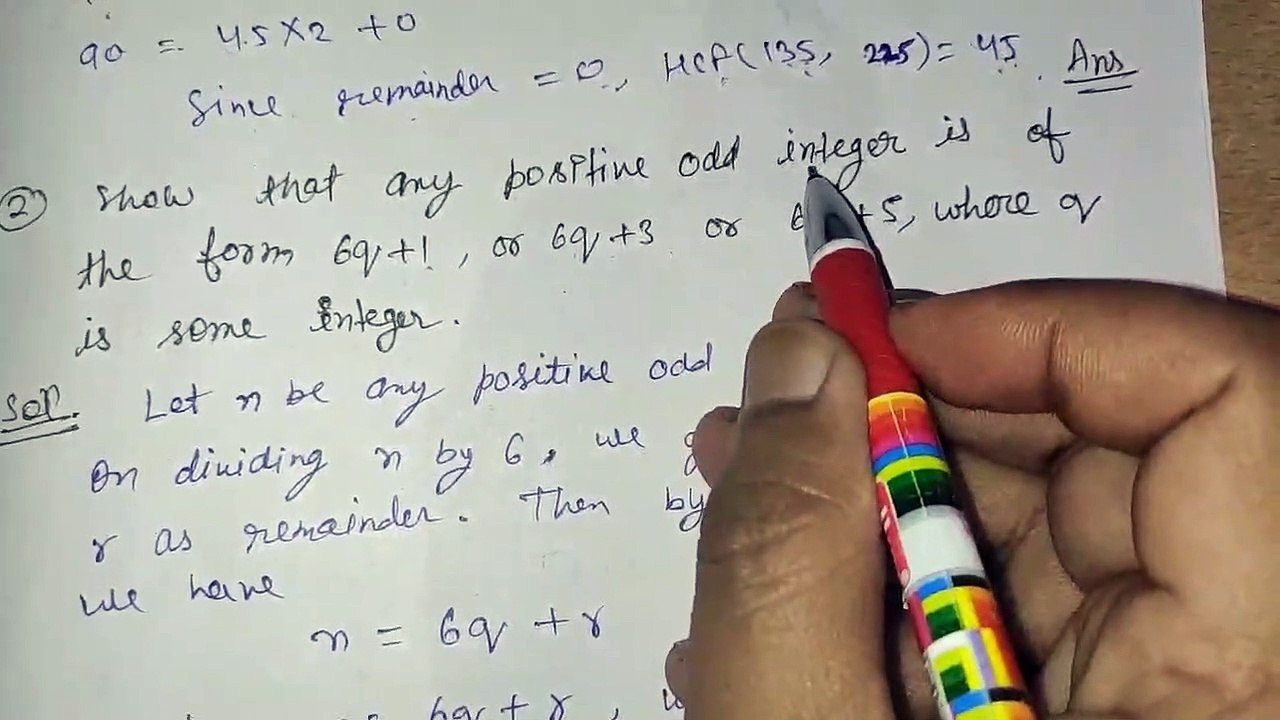 90 = 45×2 + 0
Since remainder = 0, HCF(135, 225) = 45. Ans
(2) Show that any positive odd integer is of
the form 6q+1, or 6q+3 or 6 +5, where q
is some integer.
Sol. Let n be any positive odd
On dividing n by 6, we
r as remainder. Then by
we have
n = 6q + r
6q + r,